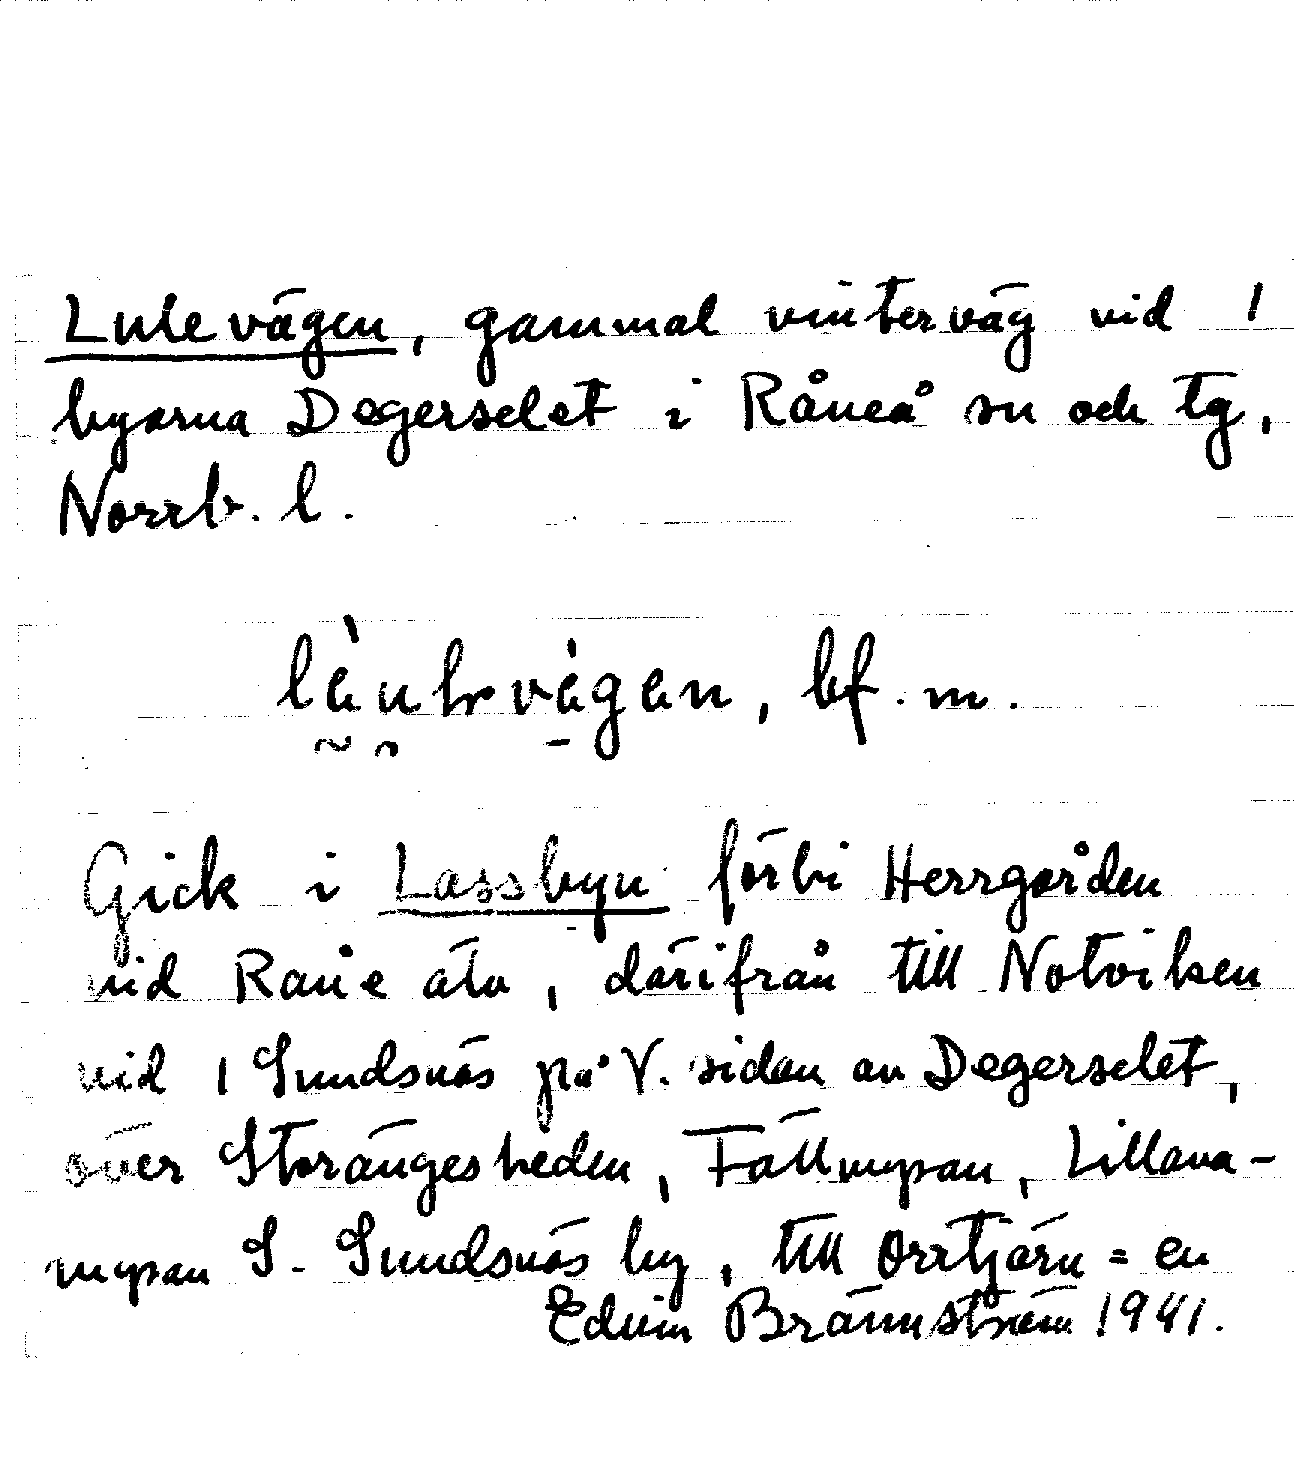 Lulevägen, gammal vinterväg vid 1
byarna Degerselet i Råneå sn och tg,
Norrb. l.
bf. m.
Gick i Lassbyn förbi Herrgården
vid Råne älv, därifrån till Notviken
vid 1 Sundsnäs på V. sidan av Degerselet,
över Storängesheden, Fällmyran, Lillava-
myran S. Sundsnäs by, till Orrtjärn = en
Edvin Brännström 1941.